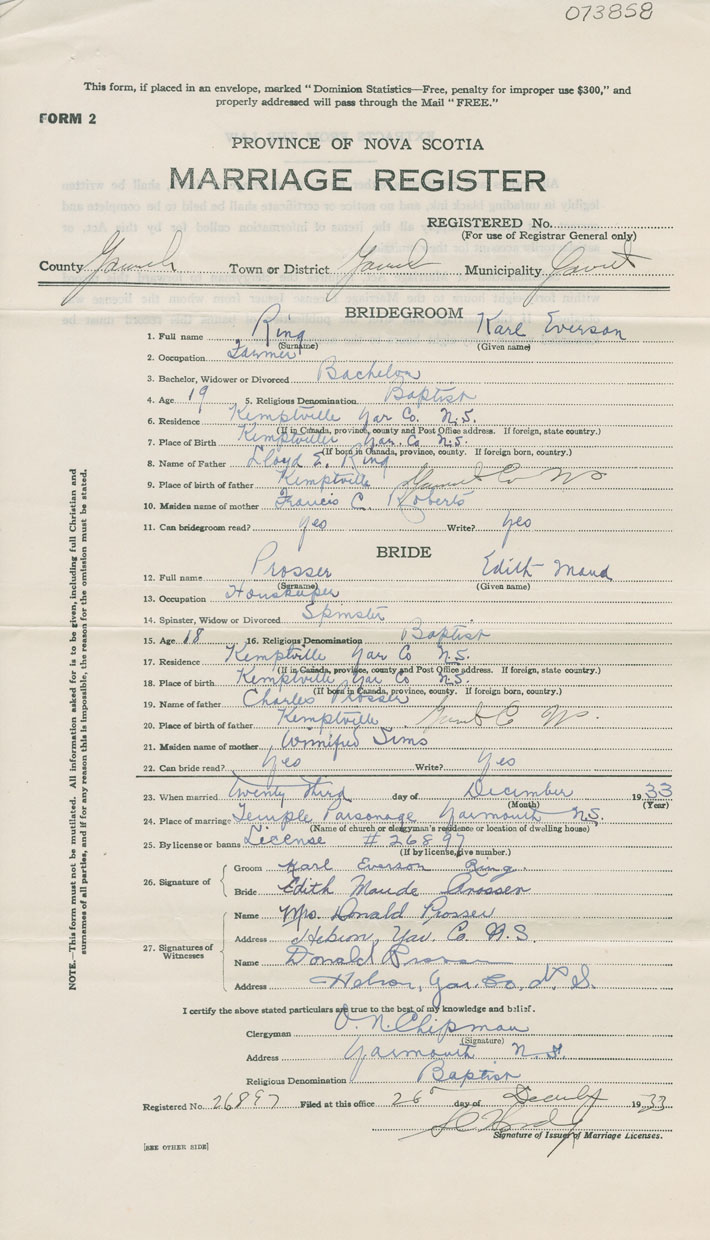 073858
This form, if placed in an envelope, marked "Dominion Statistics—Free, penalty for improper use $300," and
properly addressed will pass through the Mail "FREE."
FORM 2
PROVINCE OF NOVA SCOTIA
MARRIAGE REGISTER
REGISTERED No.
(For use of Registrar General only)
County Yarmouth Town or District Yarmouth Municipality
BRIDEGROOM
1. Full name Ring Karl Everson
(Surname) (Given name)
2. Occupation Farmer
3. Bachelor, Widower or Divorced Bachelor
4. Age 19 5. Religious Denomination Baptist
6. Residence Kemptville Yar Co. N.S.
(If in Canada, province, county and Post Office address. If foreign, state country.)
7. Place of Birth Kemptville Yar. Co N.S.
(If born in Canada, province, county. If foreign born, country.)
8. Name of Father Lloyd E. Ring
9. Place of birth of father Kemptville Yarmouth Co NS
10. Maiden name of mother Francis C. Roberts
11. Can bridegroom read? yes Write? yes
BRIDE
12. Full name Prosser Edith Maud
(Surname) (Given name)
13. Occupation Houskeeper
14. Spinster, Widow or Divorced Spinster
15. Age 18 16. Religious Denomination Baptist
17. Residence Kemptville Yar Co N.S.
(If in Canada, province, county and Post Office address. If foreign, state country.)
18. Place of birth Kemptville Yar Co N.S.
(If born in Canada, province, county. If foreign born, country.)
19. Name of father Charles Prosser
20. Place of birth of father Kemptville Yarmouth Co NS.
21. Maiden name of mother Winnifred Sims
22. Can bride read? yes Write? yes
23. When married twenty third day of December 1933
(Month) (Year)
24. Place of marriage Temple Parsonage Yarmouth N.S.
(Name of church or clergyman's residence or location of dwelling house)
25. By license or banns License # 26897
(If by license, give number.)
26. Signature of
Groom Karl Everson Ring
Bride Edith Maude Prosser
27. Signatures of Witnesses
Name Mrs. Donald Prosser
Address Hebron, Yar. Co. N.S.
Name Donald Prosser
Address Hebron, Yar. Co. N. S.
I certify the above stated particulars are true to the best of my knowledge and belief.
Clergyman O. N. Chipman
(Signature)
Address Yarmouth N.S.
Religious Denomination Baptist
Registered No. 26897 Filed at this office 26 day of December 1933
Signature of Issuer of Marriage Licenses.
[SEE OTHER SIDE]
NOTE.—This form must not be mutilated. All information asked for is to be given, including full Christian and
surnames of all parties, and if for any reason this is impossible, the reason for the omission must be stated.